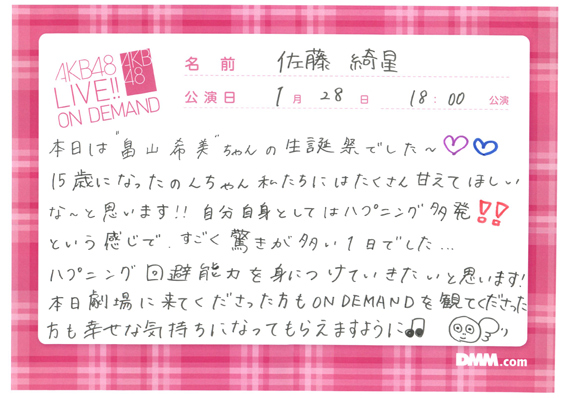 AKB48
LIVE!!
ON DEMAND
AKB
48
名前 佐藤 綺星
公演日 1月28日 18:00 公演
本日は"畠山希美"ちゃんの生誕祭でした〜
15歳になったのんちゃん私たちにはたくさん甘えてほしい
な〜と思います!! 自分自身としてはハプニング多発!!
という感じで、すごく驚きが多い1日でした...
ハプニング回避能力を身につけていきたいと思います!
本日劇場に来てくださった方もON DEMANDを観てくださった
方も幸せな気持ちになってもらえますように♫
DMM.com